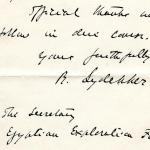 official thanks w
follow in due course.
Yours faithfully
R. Lydekker
The Secretary
Egyptian Exploration F